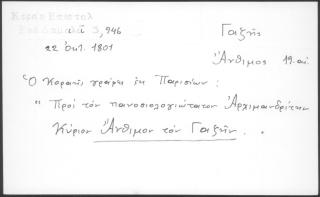 Γαζῆς
3,946
22 ὀκτ. 1801
Ἄνθιμος 19. αἰ
Ὁ Κοραῆς γράφει ἐκ Παρισίων :
" Πρὸς τὸν πανοσιολογιώτατον Ἀρχιμανδρίτην
Κύριον Ἄνθιμον τὸν Γαζῆν .